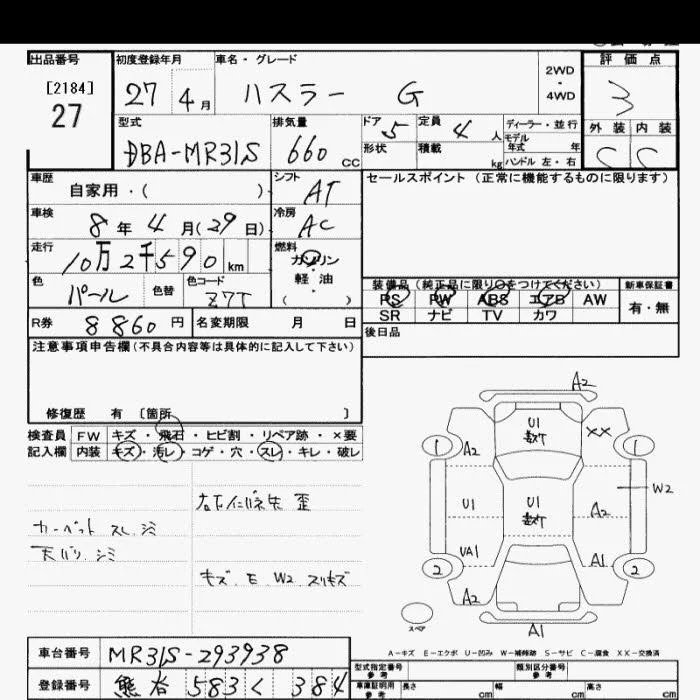 出品番号
[2184]
27
初度登録年月
27 4月
車名・グレード
ハスラー G
2WD
・
4WD
評価点
3
外装 内装
C C
型式
DBA-MR31S
排気量
660 cc
ドア 5
定員 4人
ディーラー・並行
モデル
年式 年
形状
積載 kg
ハンドル 左・右
車歴
自家用・( )
シフト
AT
セールスポイント(正常に機能するものに限ります)
車検
8年4月(29日)
冷房
AC
走行
10万2千590km
燃料
ガソリン
・
軽油
( )
色
パール
色替
色コード
Z7T
装備品(純正品に限り○をつけてください)
PS PW ABS エアB AW
SR ナビ TV カワ
新車保証書
有・無
R券 8860円
名変期限 月 日
後日品
注意事項申告欄(不具合内容等は具体的に記入して下さい)
修復歴 有 〔箇所 〕
検査員
記入欄
FW キズ・飛石・ヒビ割・リペア跡・×要
内装 キズ・汚レ・コゲ・穴・スレ・キレ・破レ
カーペット スレ シミ
天バリ シミ
キズ E W2 スリキズ
A2
U1
数ケ
XX
1
A2
1
U1
U1
数ケ
A2
W2
UA1
A1
2
A2
2
スペア
A1
A-キズ E-エクボ U-凹み W-補修跡 S-サビ C-腐食 XX-交換済
車台番号
MR31S-293938
登録番号
熊谷 583 く 384
型式指定番号
参考
類別区分番号
参考
車庫証明用
参考
長さ cm
幅 cm
高さ cm